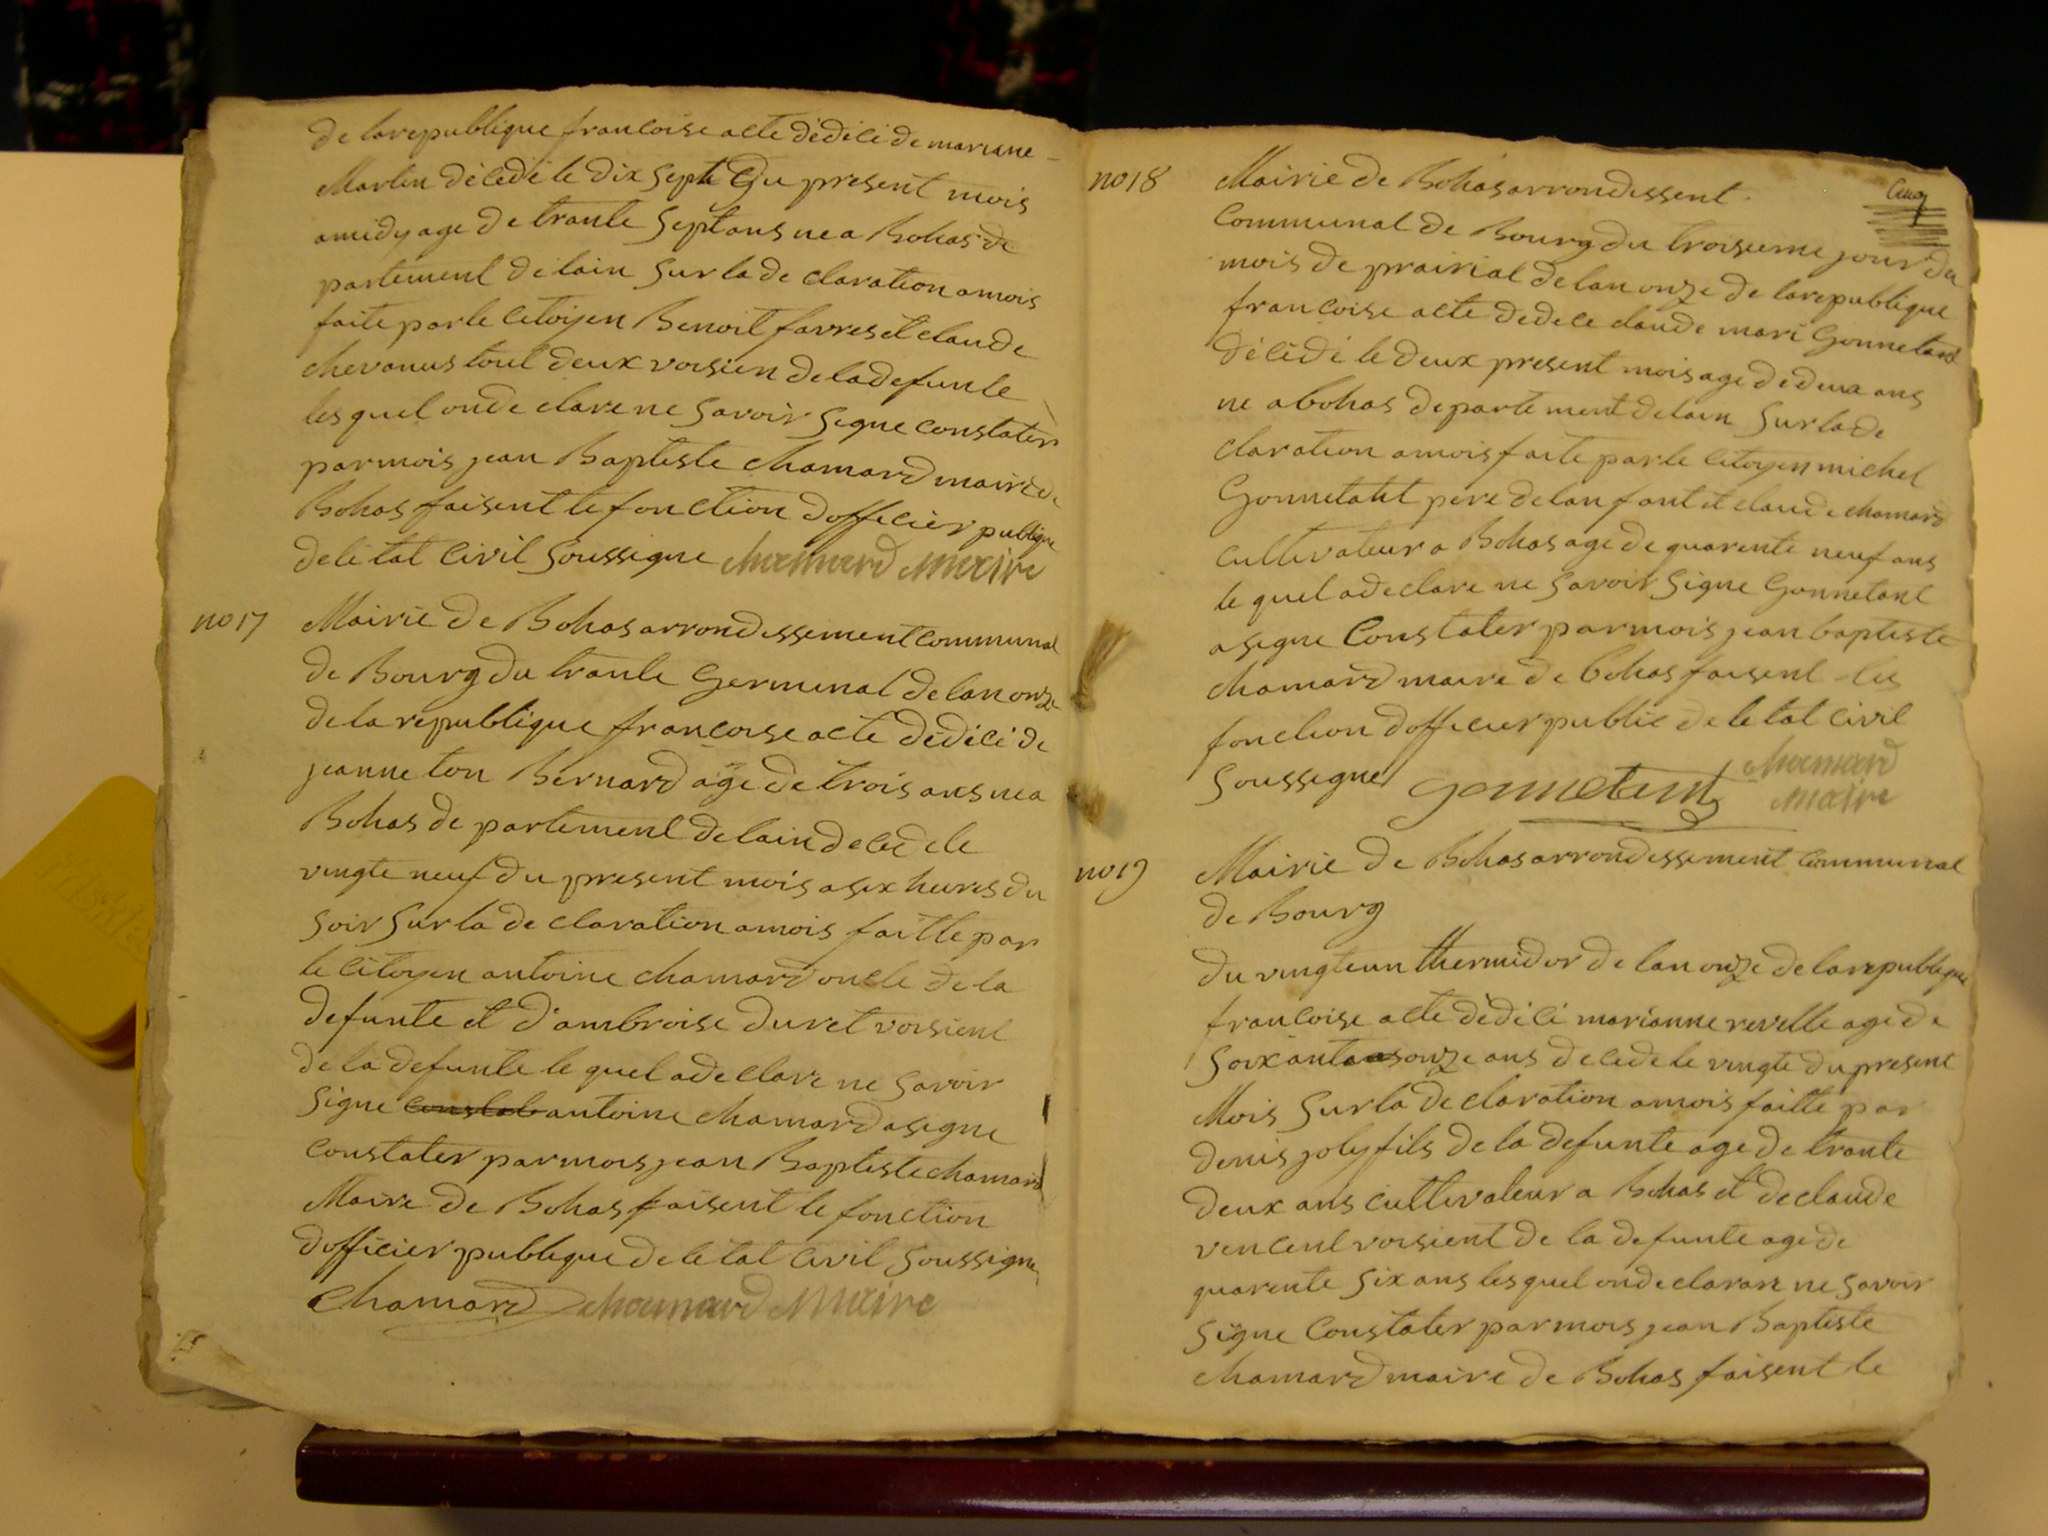 de larepublique francoise acte dèdici de mariane
Martin dècèdè le dix sept du present mois
amidy age de trante Septans ne a Bohas de
partement de lain Sur la de claration amois
faite par le Citoyen Benoit favres et claude
chevanus tout deux voisien de la defunte
les quel onde clare ne Savoir Signe constater
parmois jean Baptiste chamard maire de
Bohas faisent le fonction dofficier publique
de lètat Civil Soussigne chamard Maire
no 17 Mairie de Bohas arrondissement Communal
de Bourg du trante Germinal de lan onze
de la republique francoise acte dèdici de
jeanneton Bernard age de trois ans ne a
Bohas de partement de lain decede le
vingte neuf du present mois a six heures du
soir Sur la de claration amois faitte par
le Citoyen antoine chamard oncle de la
defunte et d'ambroise Duret voisient
de la defunte le quel a de clare ne Savoir
Signe antoine chamard a signe
Constater parmois jean Baptiste chamard
Maire de Bohas faisent le fonction
dofficier publique de lètat Civil Soussigne
chamard chamard Maire
no 18 Mairie de Bohas arrondissent
Cinq
Communal de Bourg du troisieme jour du
mois de prairial de lan onze de larepublique
francoise acte dedece claude mari Gonnetant
dècèdè le deux present mois age de deux ans
ne abohas departement delain Sur la de
claration amois faite par le Citoyen michel
Gonnetant pere de lanfant et claude chamard
Cultivateur a Bohas age de quarente neuf ans
le quel a declare ne Savoir Signe Gonnetant
a signe Constater parmois jean baptiste
chamard maire de bohas faisent les
fonction dofficier public de letat Civil
Soussigne gonnetant chamard
Maire
no 19 Mairie de Bohas arrondissement Communal
de Bourg
du vingteun thermidor de lan onze de larepublique
francoise acte dèdèci marianne revelle age de
Soixante onze ans decede le vingte du present
Mois Sur la de claration amois faitte par
denis joly fils de la defunte age de trante
deux ans cultivateur a Bohas et de claude
vencent voisient de la defunte age de
quarente Six ans les quel onde clarare ne Savoir
Signe Constater parmois jean Baptiste
chamard maire de Bohas faisent le